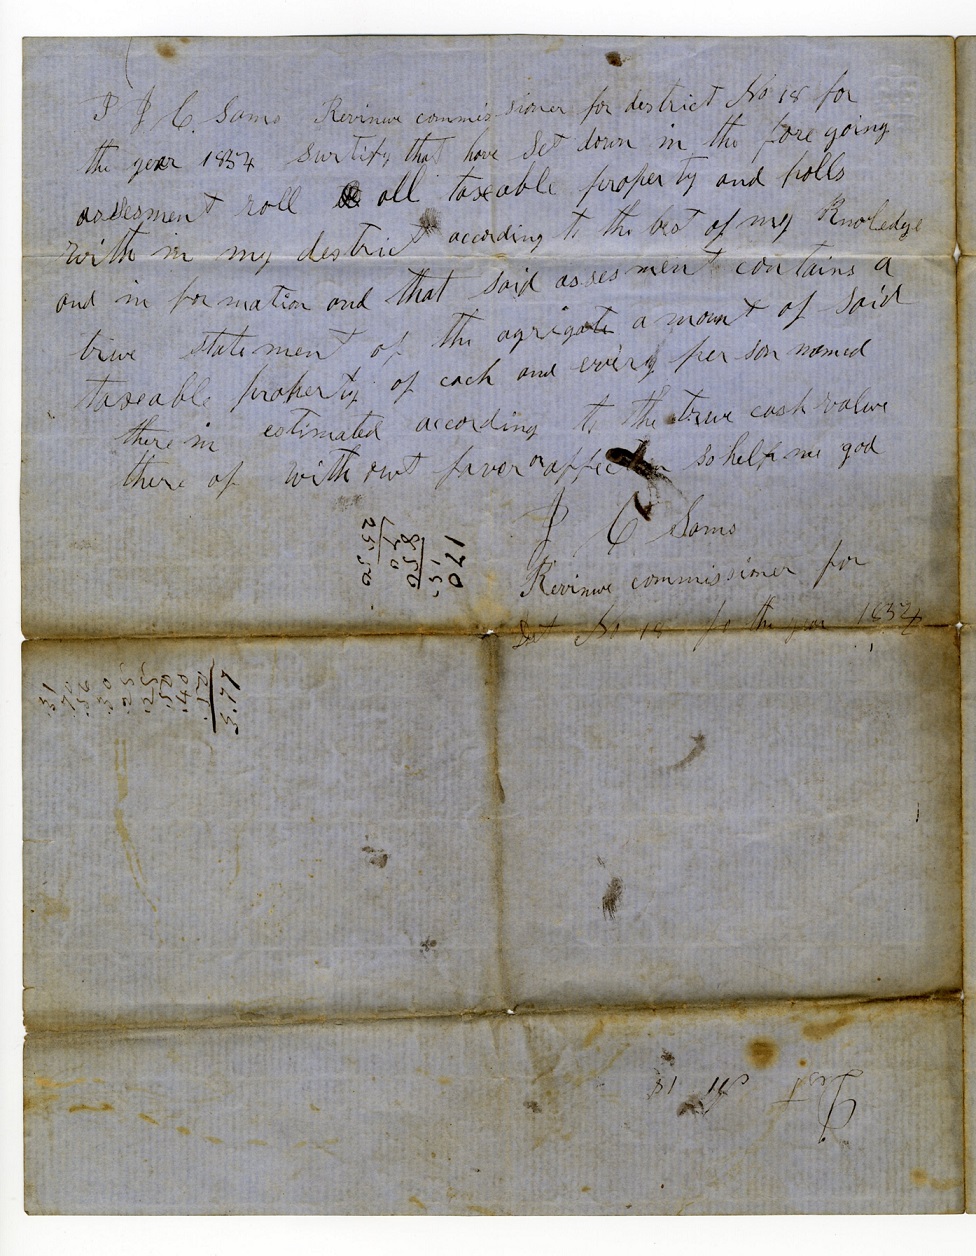 I J C. Sams Revinue commissioner for destrict No 18 for
the year 1854 surtify that have set down in the fore going
assesment roll all taxeable property and polls
with in my destrict according to the best of my Knoledge
and in formation and that said assesment contains a
true statement of the agrigate amount of said
taxeable property of each and every person named
there in estimated according to the true cash value
there of with out favor or so help me god
J C Sams
Revinue commissioner for
Dist No 18 for the year 1854
170
15
850
30
2550
.31
.70
.30
.25
.25
.50
.40
Dist No 18